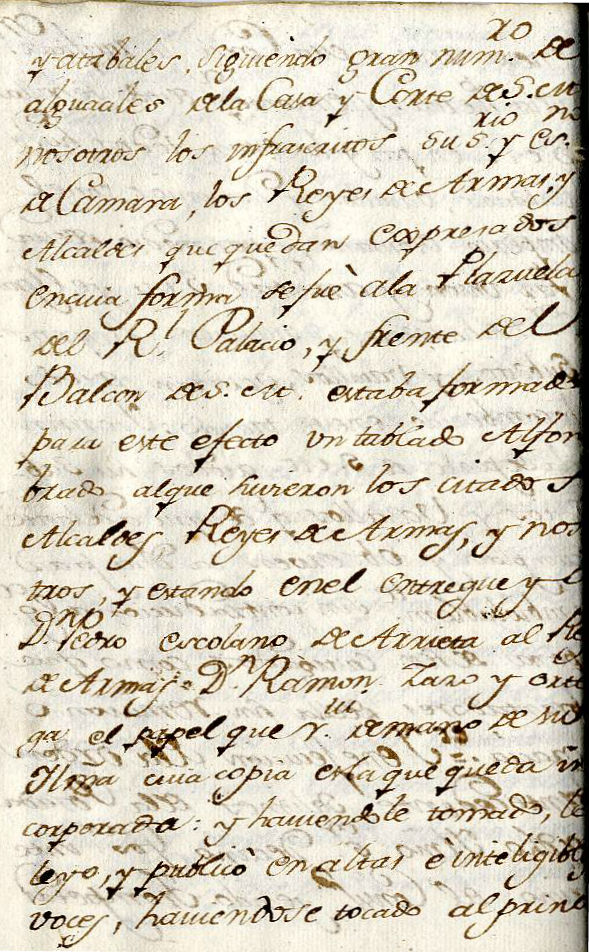 y atabales, siguiendo gran num.ro de
alguaciles de la Casa y Corte de S. M.
nosotros los infrascritos SS.rios y es.nos
de Camara, los Reyes de Armas, y
Alcaldes que quedan expresados
en cuia forma se fuè ala Plazuela
del R.l Palacio, y frente del
Balcon de S. M. estaba formado
para este efecto un tablado Alfom
brado al que suvieron los citados
Alcaldes Reyes de Armas, y noso
tros, y estando en el entregue yo
D.n Pedro escolano de Arrieta al Re
de Armas D.n Ramon Zazo y orte
ga el papel que r.vi de mano de su
Ilma cuia copia es la que queda in
corporada: y haviendole tomado, le
leyo, y publicò en altas è inteligibles
voces, haviendose tocado al princi